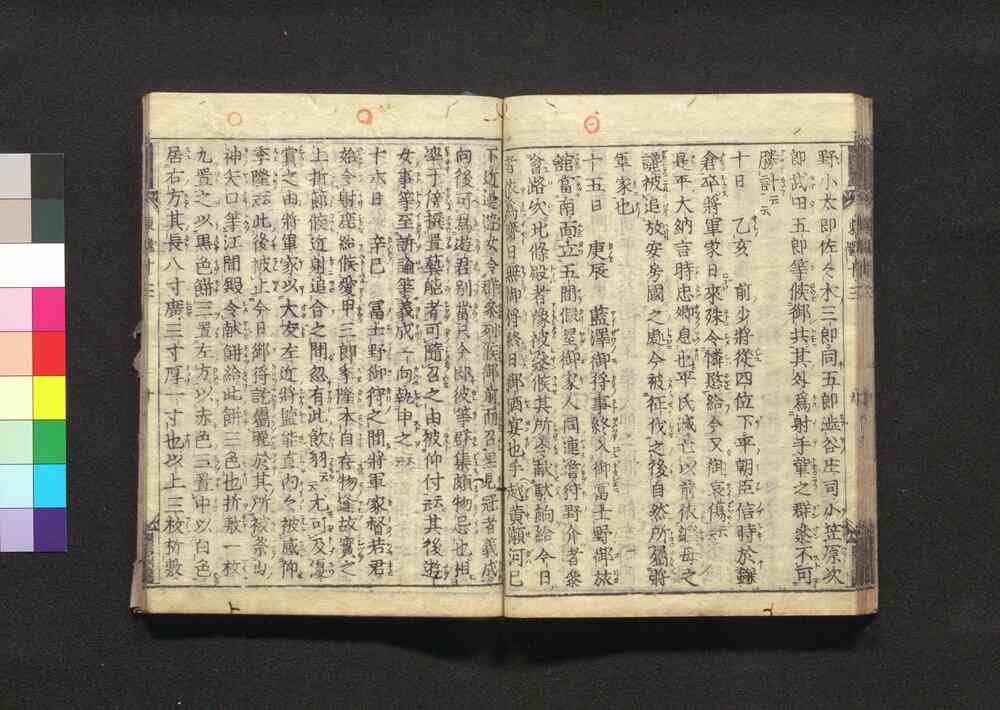 野小太郎佐々木三郎同五郎澁谷庄司小笠原次
郎武田五郎等候御共其外爲射手輩之群參不可
勝計云云
十日　乙亥　前少將從四位下平朝臣信時於鎌
倉卒將軍家日來殊令憐愍給今又御哀傷云云
是平大納言時忠卿息也平氏滅亡以前依繼母之
讒被追放安房國之處今被征伐之後自然所屬將
軍家也
十五日　庚辰　藍澤御狩事終入御富士野御旅
舘當南面立五間假屋御家人同連簷狩野介者參
會路次北條殿者豫被參候其所令獻駄餉給今日
者依爲齋日無御狩終日御酒宴也手越黄瀬河已
下近邊遊女令群參列候御前而召里見冠者義成
向後可爲遊君別當只今即彼等群集頗物忌也相
率于傍撰置藝能者可隨召之由被仰付云云其後遊
女事等至訴論等義成一向執申之云云
十六日　辛巳　冨士野御狩之間將軍家督若君
始令射鹿給候愛甲三郎季隆本自存物逢故實之
上折節候近射追合之間忽有此飲羽云云尤可及優
賞之由將軍家以大友左近將監能直内々被感仰
季隆云云此後被止今日御狩訖屬晩於其所被祭山
神矢口等江間殿令獻餅給此餅三色也折敷一枚
九置之以黒色餅三置左方以赤色三置中以白色
居右方其長八寸廣三寸厚一寸也以上三枚折敷